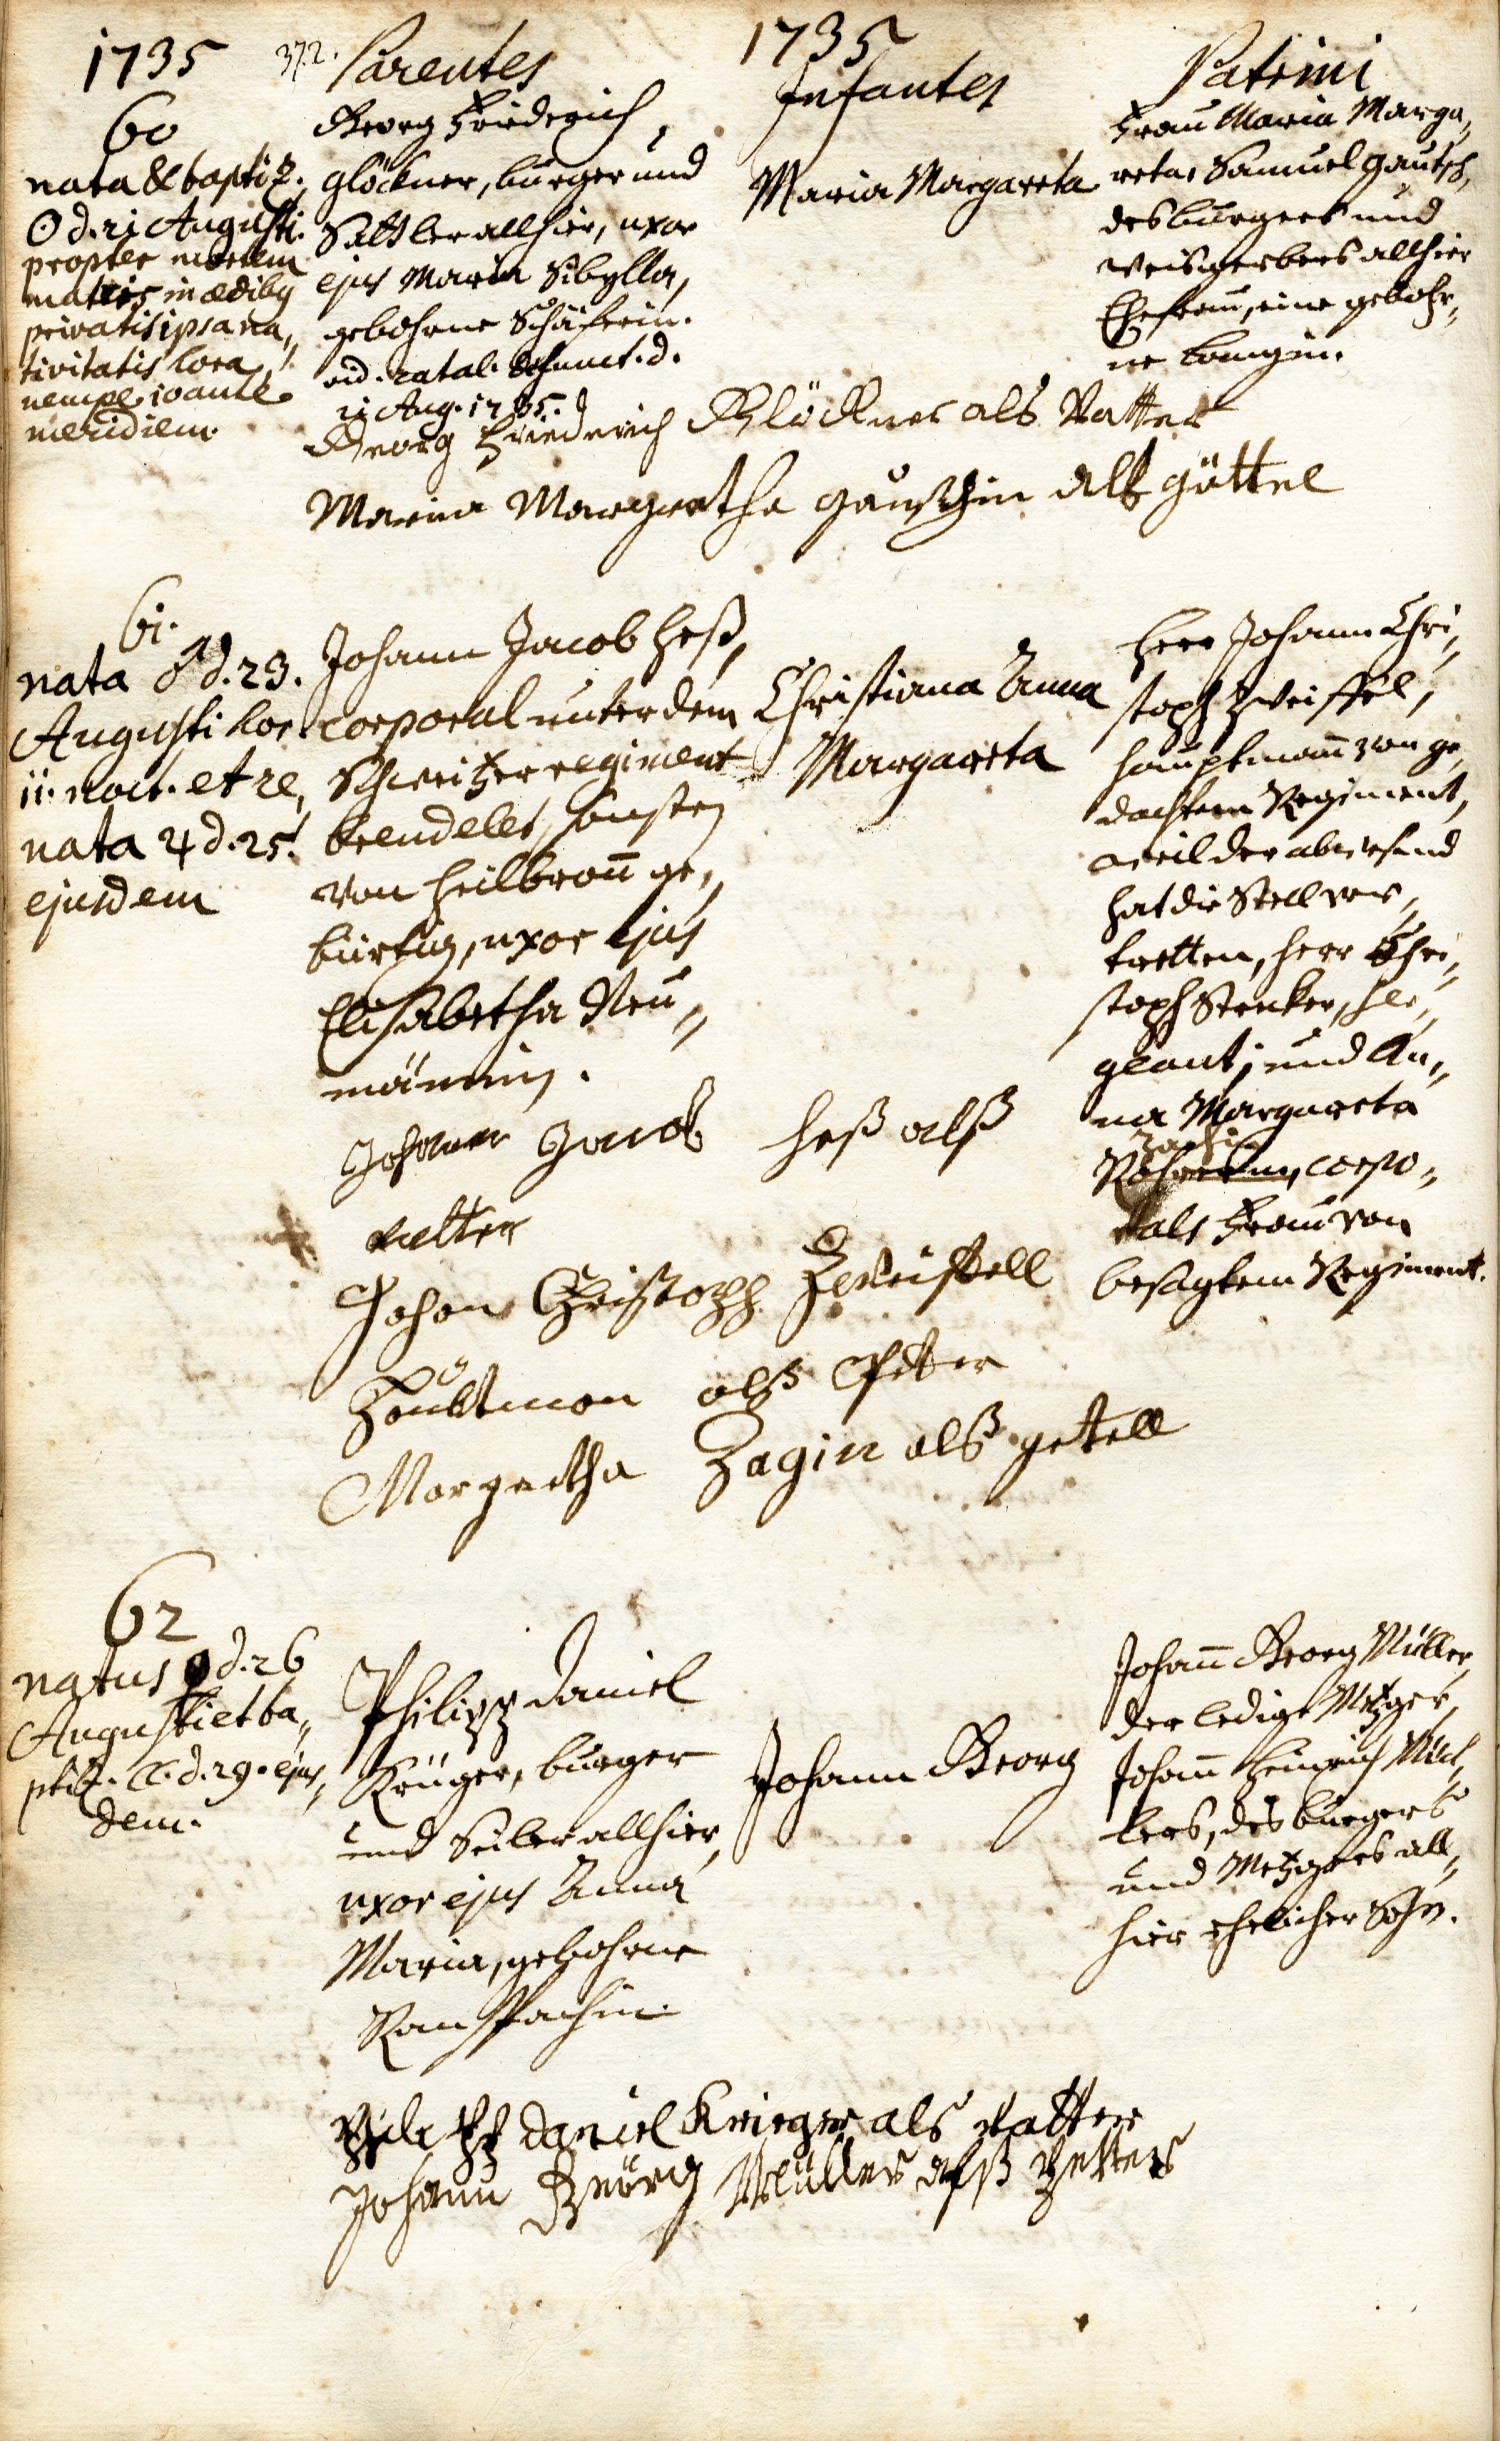 1735
372.
Parentes
1735
Infantes
Patrini
60
nata & baptiz.
☉ d. 21 Augusti
propter mortem
matris in ædibus
privatis ipsa na„
tivitatis hora
nempe 10 ante
meridiem.
Georg Friderich
Glöckner, burger und
Sattler allhier, uxor
ejus Maria Sibylla,
gebohrne Schäferin.
vid. catal. defunct. d.
21 Aug. 1735.
Maria Margareta
Frau Maria Marga„
reta, Samuel Gautsch,
des burgers und
Weisgerbers allhier
Ehefrau, eine gebohr„
ne
Georg Friederich Glöckner als Vatter
Maria Margretha Gautschin alß göttel
61.
nata ♂ d. 23.
Augusti hor.
11. noct. et re„
nata ♃ d. 25.
ejusdem
Johann Jacob Heß,
corporal unter dem
Schweitzer regiment
brendeles, sonsten
von Heilbron̄ ge„
bürtig, uxor ejus
Elisabetha Neu„
männin.
Christiana Anna
Margareta
Herr Johann Chri„
stoph Zweiffel,
Hauptman̄ von ge„
dachtem Regiment,
weil der abwesend
hat die Stell ver„
tretten, Herr Chri„
stoph Strenker, ser„
geant, und An„
na Margareta
Zachin
corpo„
rals Frau von
besagtem Regiment.
Johann Jacob Heß alß
vatter
Johan Christoph Zweiffell
Haubtman alß Pfetter
Margretha Zagin alß getell
62
natus ♀ d. 26
Augusti et ba„
ptiz. ☾. d. 29. ejus„
dem.
Philipp Daniel
Krüger, burger
und Seiler allhier,
uxor ejus Anna
Maria, gebohrne
Ranspachin.
Johann Georg
Johan̄ Georg Müller,
der ledige Metzger,
Johan̄ Heinrich Mül„
lers, des burgers
und Metzgers all„
hier ehelicher Sohn.
Philipp Daniel Krieger als vatter
Johann Geörg Müller alß Petter